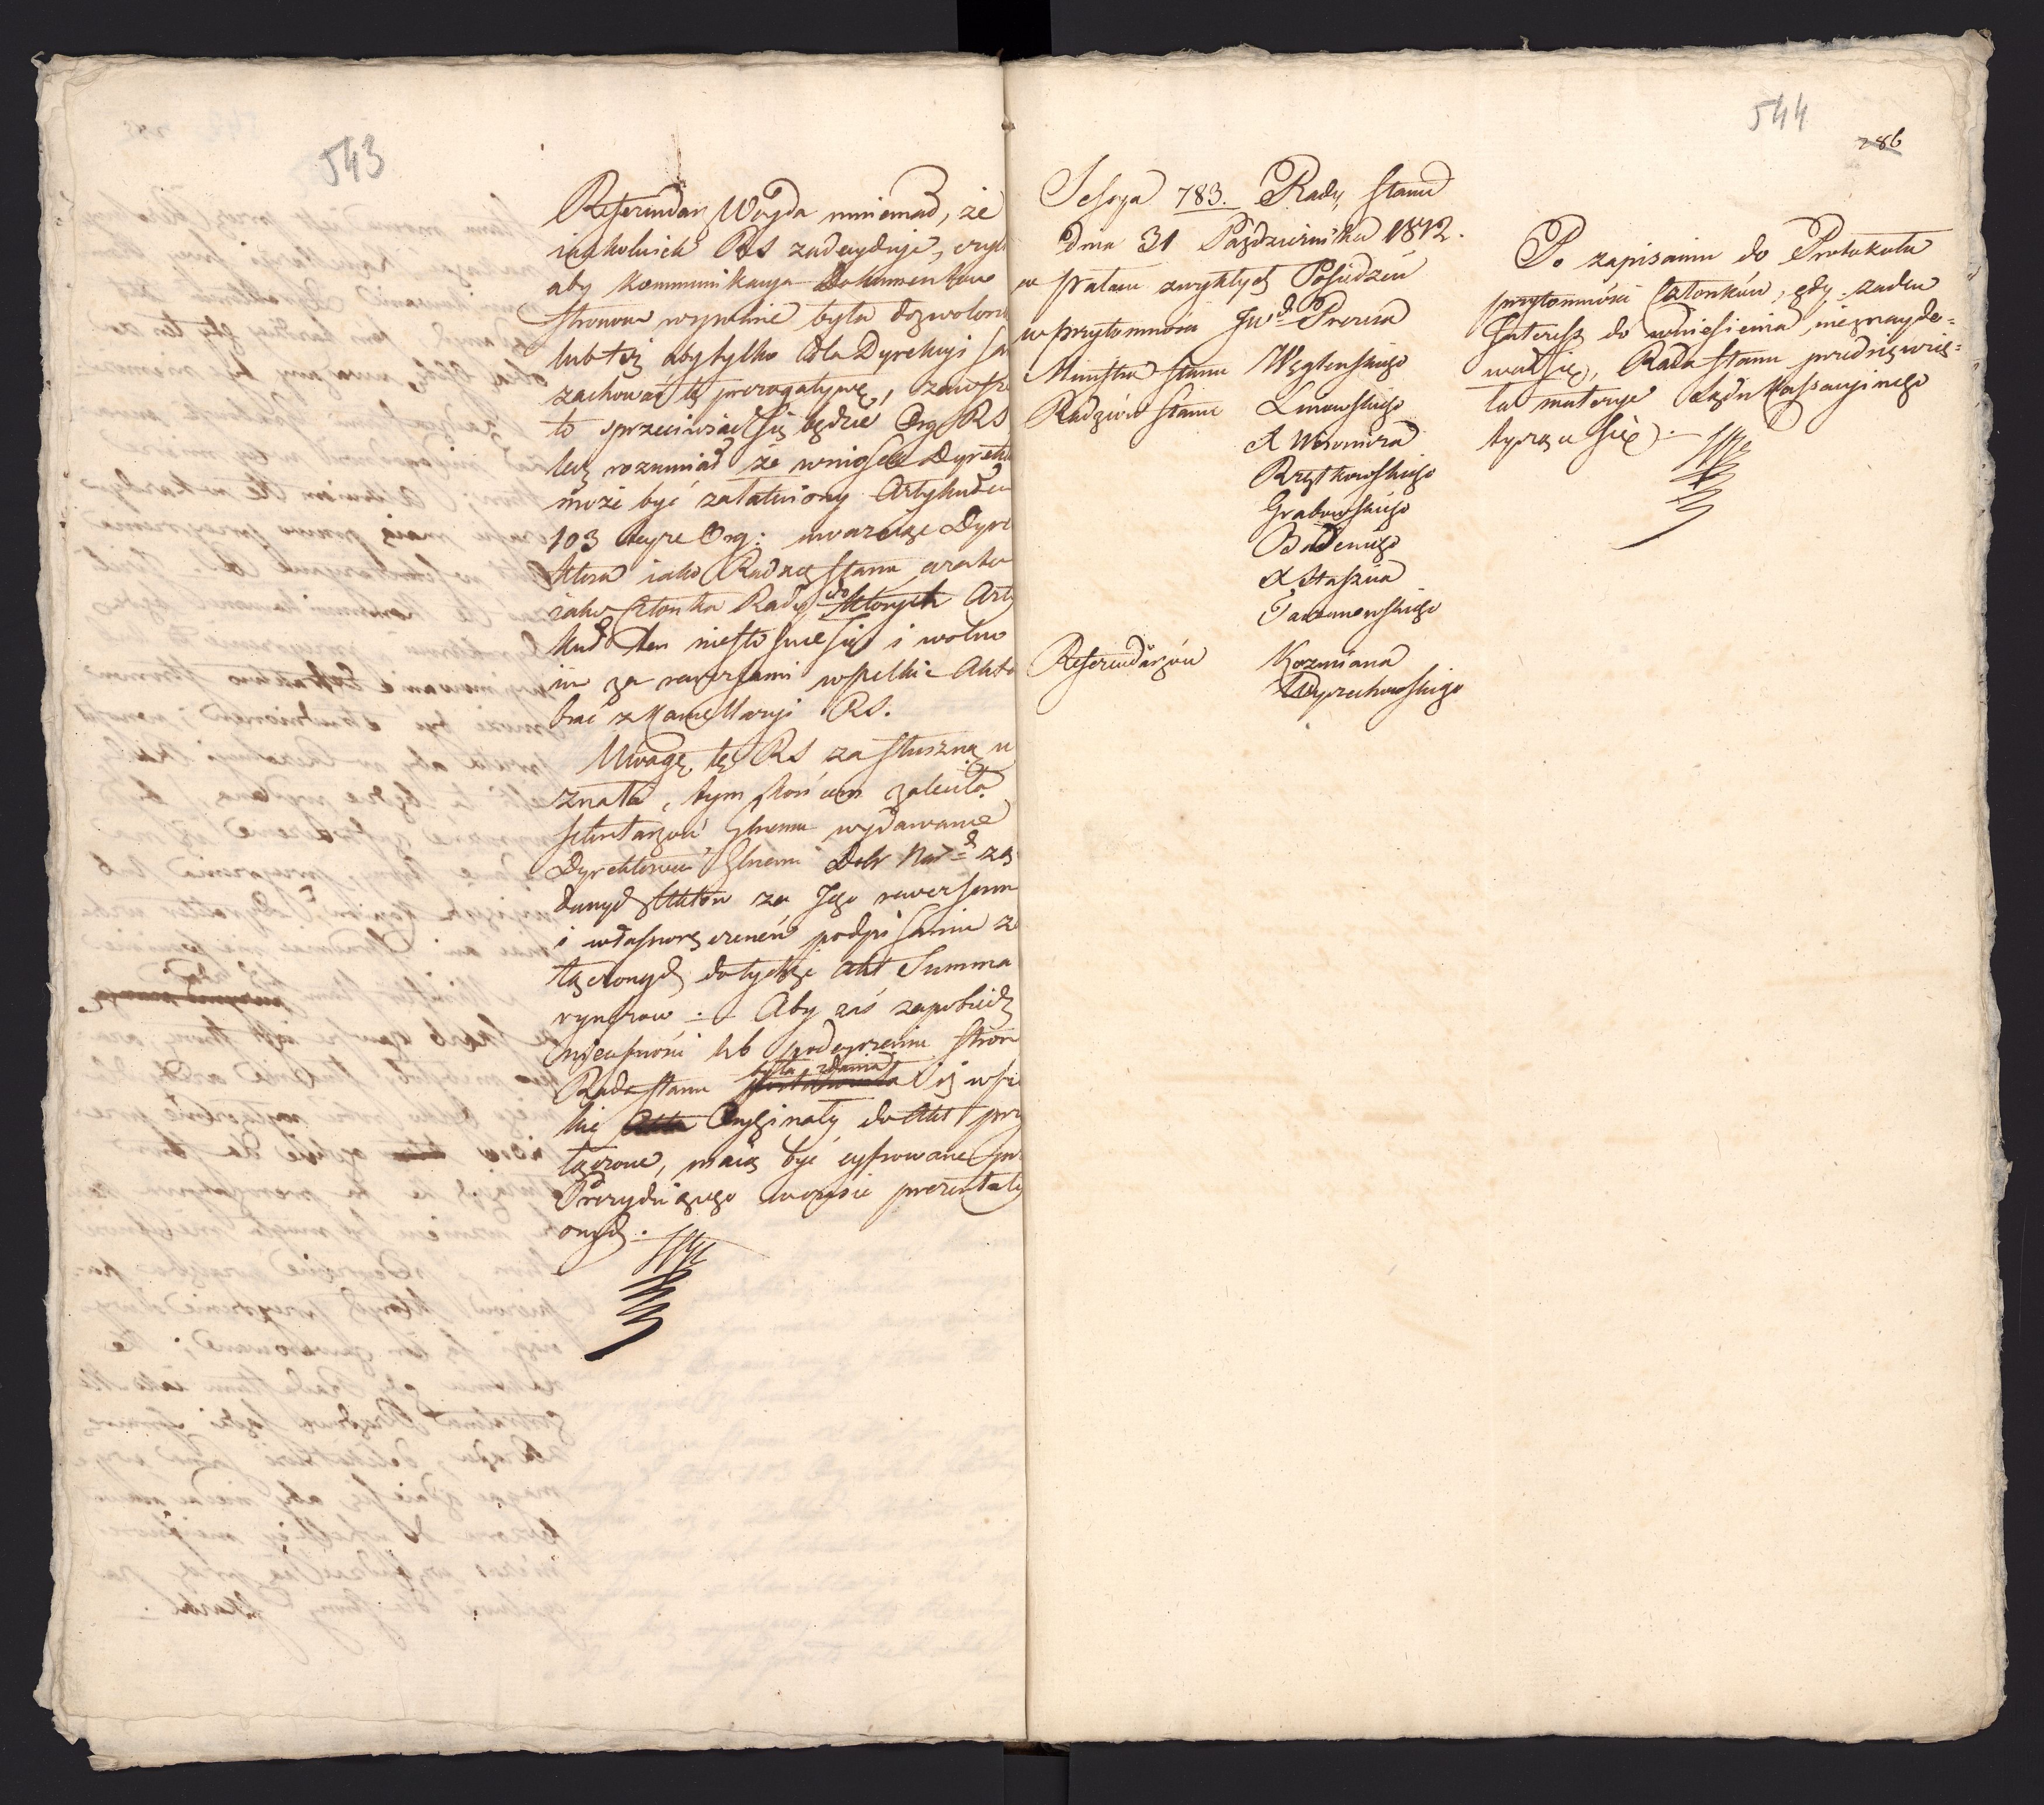 543
Referendarz Woyda mniemał, że
iakkolwiek RS zadecyduje, czyli
aby kommunikacya Dokumentow
stronom wzaiemnie była dozwolona
lub też aby tylko dla Dyrekcyi
zachować tę prerogatywę, zawsze
to sprzeciwiać się będzie Org RS
lecz rozumiał że wniosek Dyrekt
może być załatwiony Artykułem
103 teyże Org: uważaiąc Dyre
ktora iako Radzcę stanu, a zatem
iako Członka Rady do których Arty
kuł ten niestosuie się i wolno
im za rewersami wszelkie Akta
brać z Kancellaryi RS.
Uwagę tę RS za słuszną u
znała, tym końcem zaleciła
Sekretarzowi Głnemu wydawanie
Dyrektorowi Głnemu Dobr Nar: żą
danych Aktow za Jego rewersem
i własnoręcznem podpisaniem za
łączonych do tychże Akt Summa
ryuszow. – Aby zaś zapobiedz
nieufności lub podeyrzeniu stron
Rada stanu była zdania iż wszel
kie Oryginały do Akt przy
łączone, maią być cyfrowane pr
Prezyduiącego w czasie prezentaty
onych.
544
286
Sessya 783. Rady Stanu
dnia 31 Października 1812.
w Pałacu zwykłych Posiedzeń
w przytomności JW Prezesa
Ministra Stanu Węgleńskiego
Radzców Stanu Linowskiego
X Woronicza
Rzętkowskiego
Grabowskiego
Badeniego
X Staszica
Tarnowskiego
Referendarzów Kozmiana
Wyczechowskiego
Po zapisaniu do Protokułu
przytomności Członków, gdy żaden
Interess do wniesienia nieznayde-
wał się, Rada Stanu przedsięwzię-
ła materye Sądu Kassacyinego
tyczące się. –